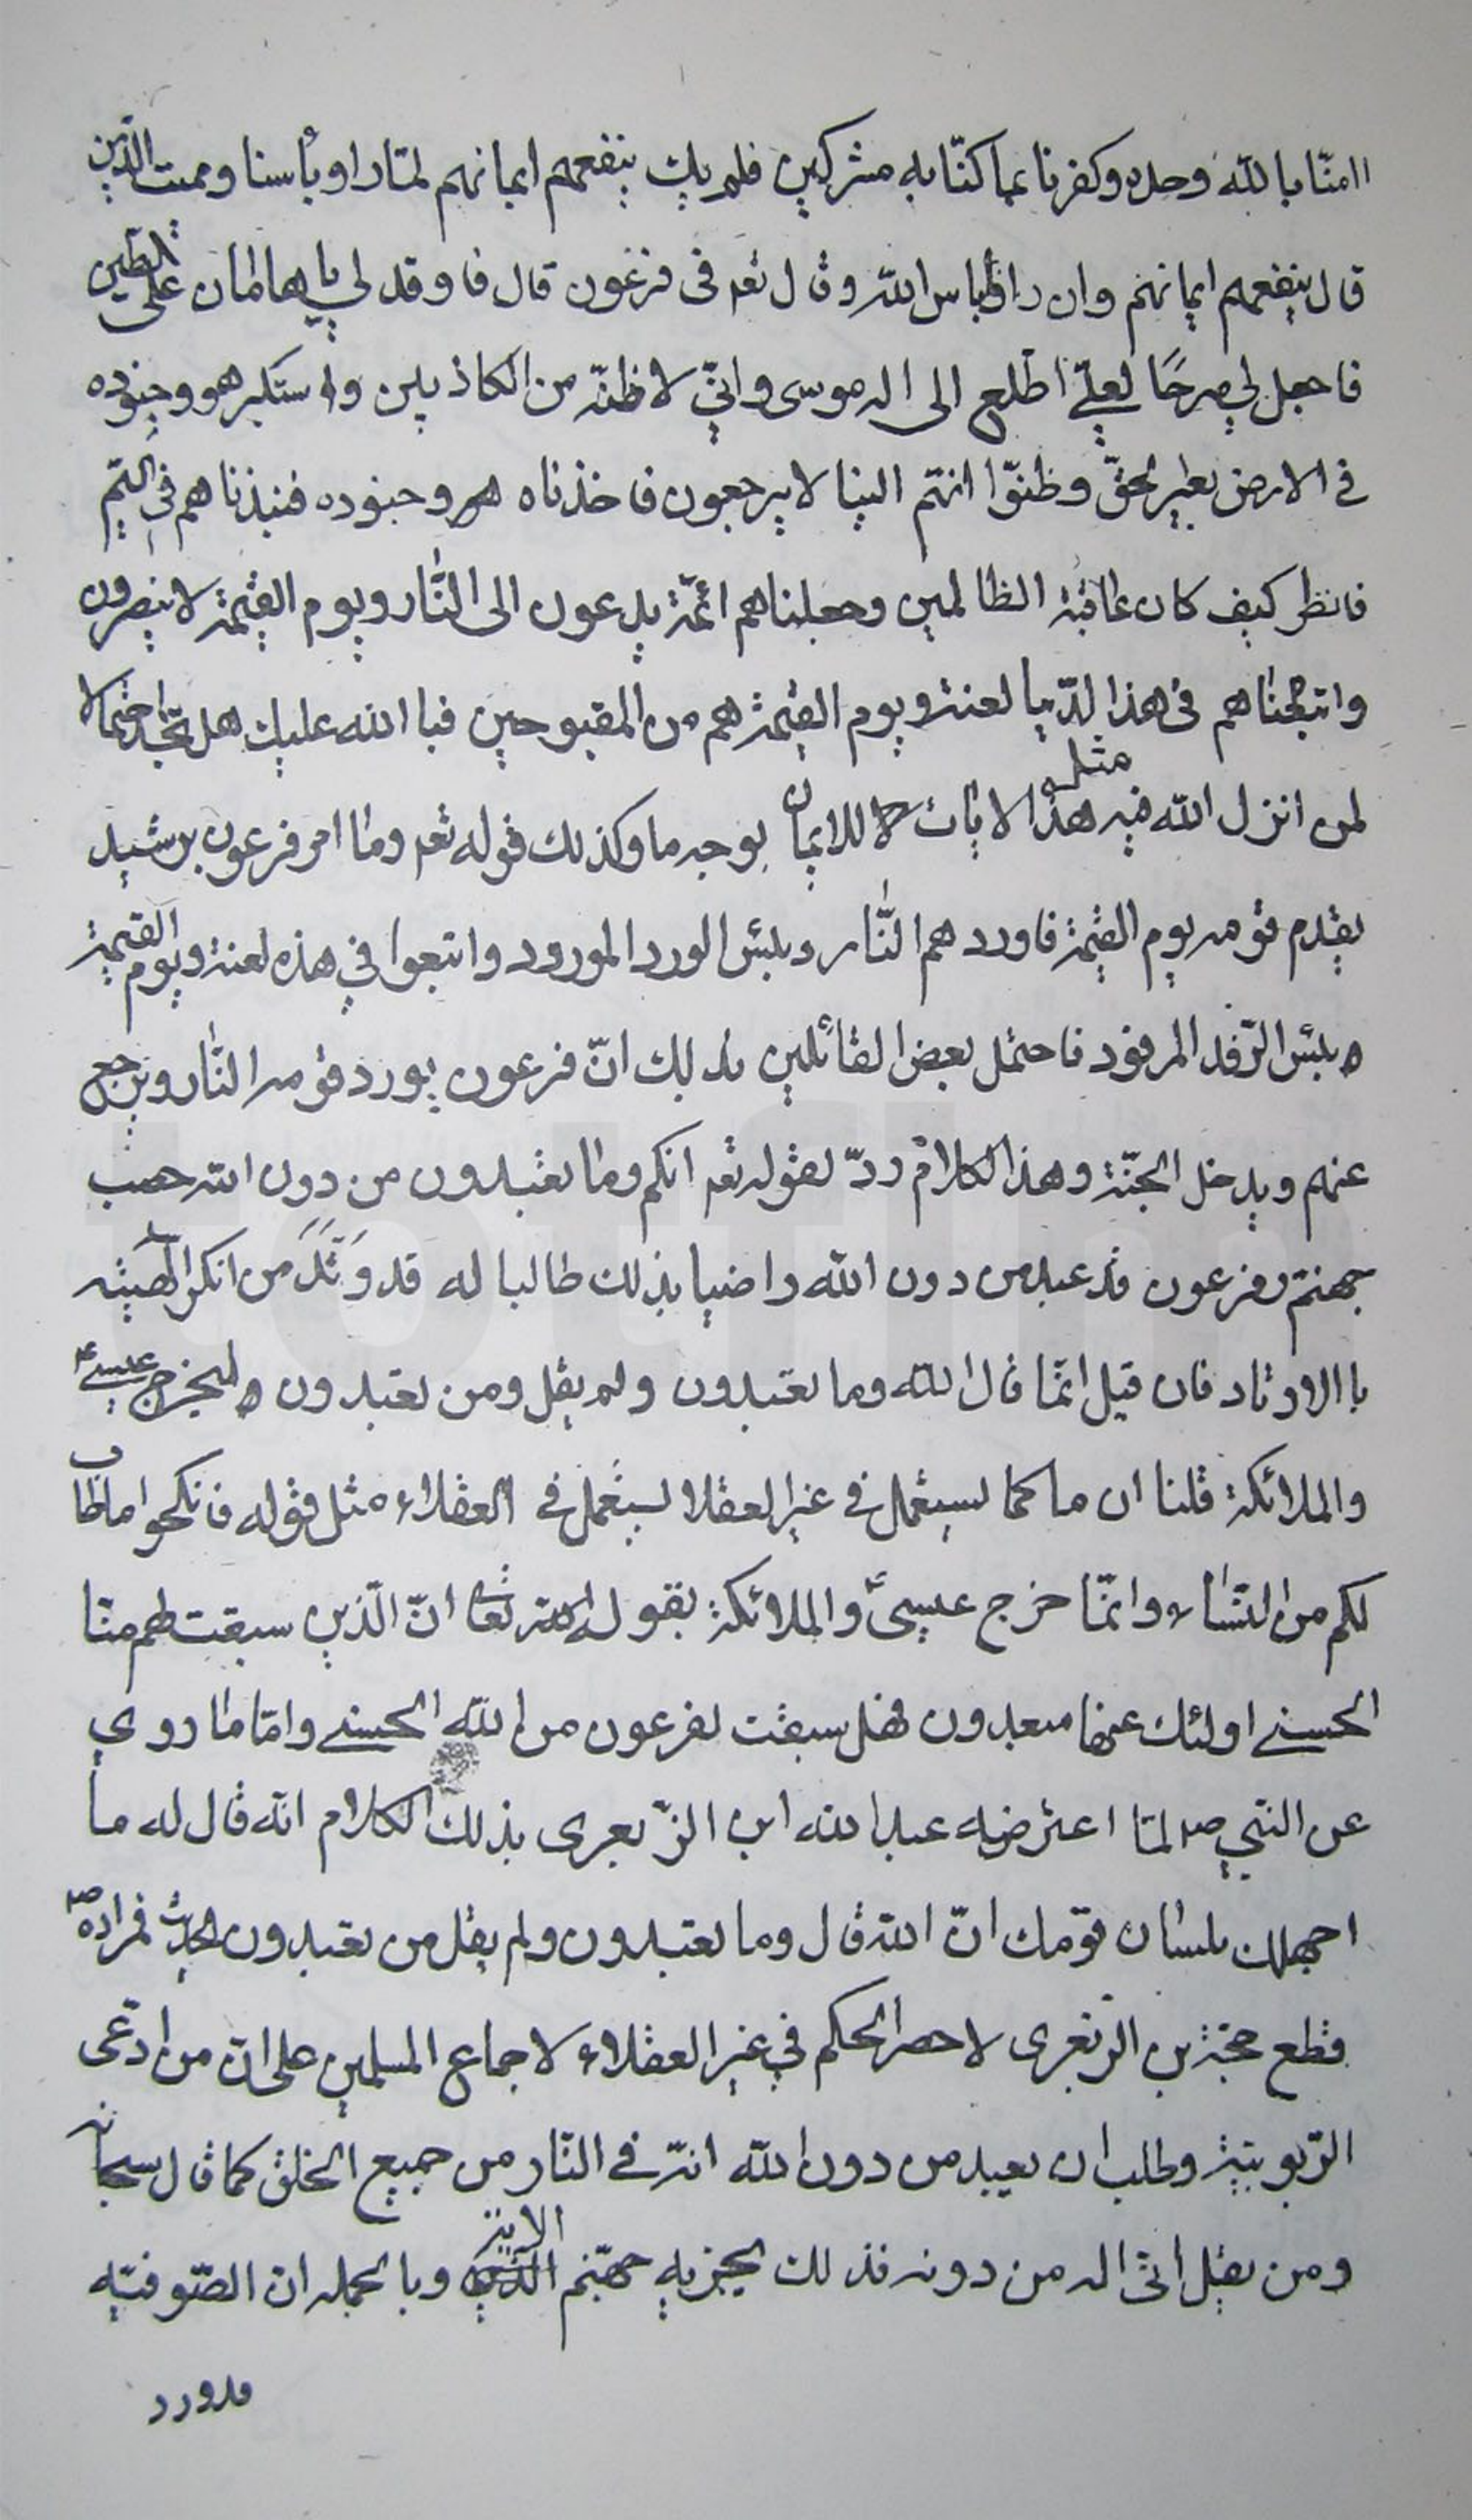 اامنّا بالله وحده وكفرنا بما كنّا به مشركين فلم يك ينفعهم ايمانهم لمّا راو بأسنا وممت الّذين
قال ينفعهم ايمانهم وان راوا باس الله وقال تعه فى فرعون قال فاوقد لي يا هامان على الطين
فاجعل لي صرحًا لعلّي اطّلع الى اله موسى وانّي لاظنّه من الكاذبين واستكبر هو وجنوده
في الارض بغير الحقّ وظنّوا انهّم الينا لا يرجعون فاخذناه هو وجنوده فنبذناهم في اليّم
فانظر كيف كان عاقبة الظالمين وجعلناهم ائمّة يدعون الى النّار ويوم القيمة لا ينصرون
واتبعناهم فى هذا الدّنيا لعنة ويوم القيمة هم من المقبوحين فبا الله عليك هل تجد احتمالا
لمن انزل الله فيه مثل هذا الايات للايمان بوجه ما وكذلك قوله تعه وما امر فرعون برشيد
يقدم قومه يوم القيمة فاوردهم النّار وبئس الورد المورود واتبعوا في هذه لعنة ويوم القيمة
بئس الرّفد المرفود فاحتمل بعض القائلين بذلك انّ فرعون يورد قومه النّار ويرجع
عنهم ويدخل الجنّة وهذا الكلام ردّ لقوله تعه انكم وما تعبدون من دون الله حصب
جهنّم وفرعون قد عبد من دون الله راضيا بذلك طالبا له قد وَتَّدَ من انكر الهيته
باالاوتاد فان قيل انمّا قال الله وما تعبدون ولم يقل ومن تعبدون ليخرج عيسى ع
والملائكة قلنا ان ما كما يستعمل في غير العقلا يستعمل في العقلاء مثل قوله فانكحوا ما طاب
لكم من النّساء وانمّا خرج عيسى ع والملائكة بقول الله تعا انّ الّذين سبقت لهم منّا
الحسنى اولئك عنها مبعدون فهل سبقت لفرعون من الله الحسنى وامّا ما روي
عن النّبي ص لمّا اعترضه عبد الله ابن الزّبعرى بذلك الكلام انّه قال له ما
اجهلك بلسان قومك انّ الله قال وما تعبدون ولم يقل من تعبدون الحديث فمراده ص
قطع حجّة بن الزّبعرى لا حصر الحكم في غير العقلاء لاجماع المسلمين على انّ من ادّعى
الرّبوبيّة وطلب ان يعبد من دون الله انّه في النّار من جميع الخلق كما قال سبحانه
ومن يقل انّى اله من دونه فذلك نجزيه جهنّم الاية وبالجمله ان الصّوفيّه